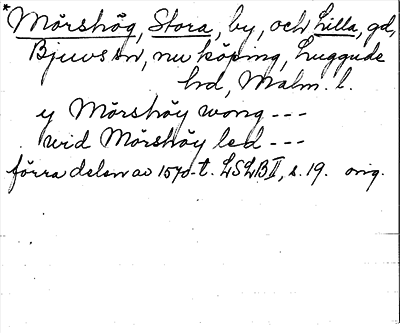 *Mörshög, Stora, by, och Lilla, gd,
Bjuvs sn, nu köping, Luggude
hd, Malm. l.
y Mörshöy wong ---
wid Mörshöy led ---
förra delen av 1570-t. LSLB II, s. 19. orig.